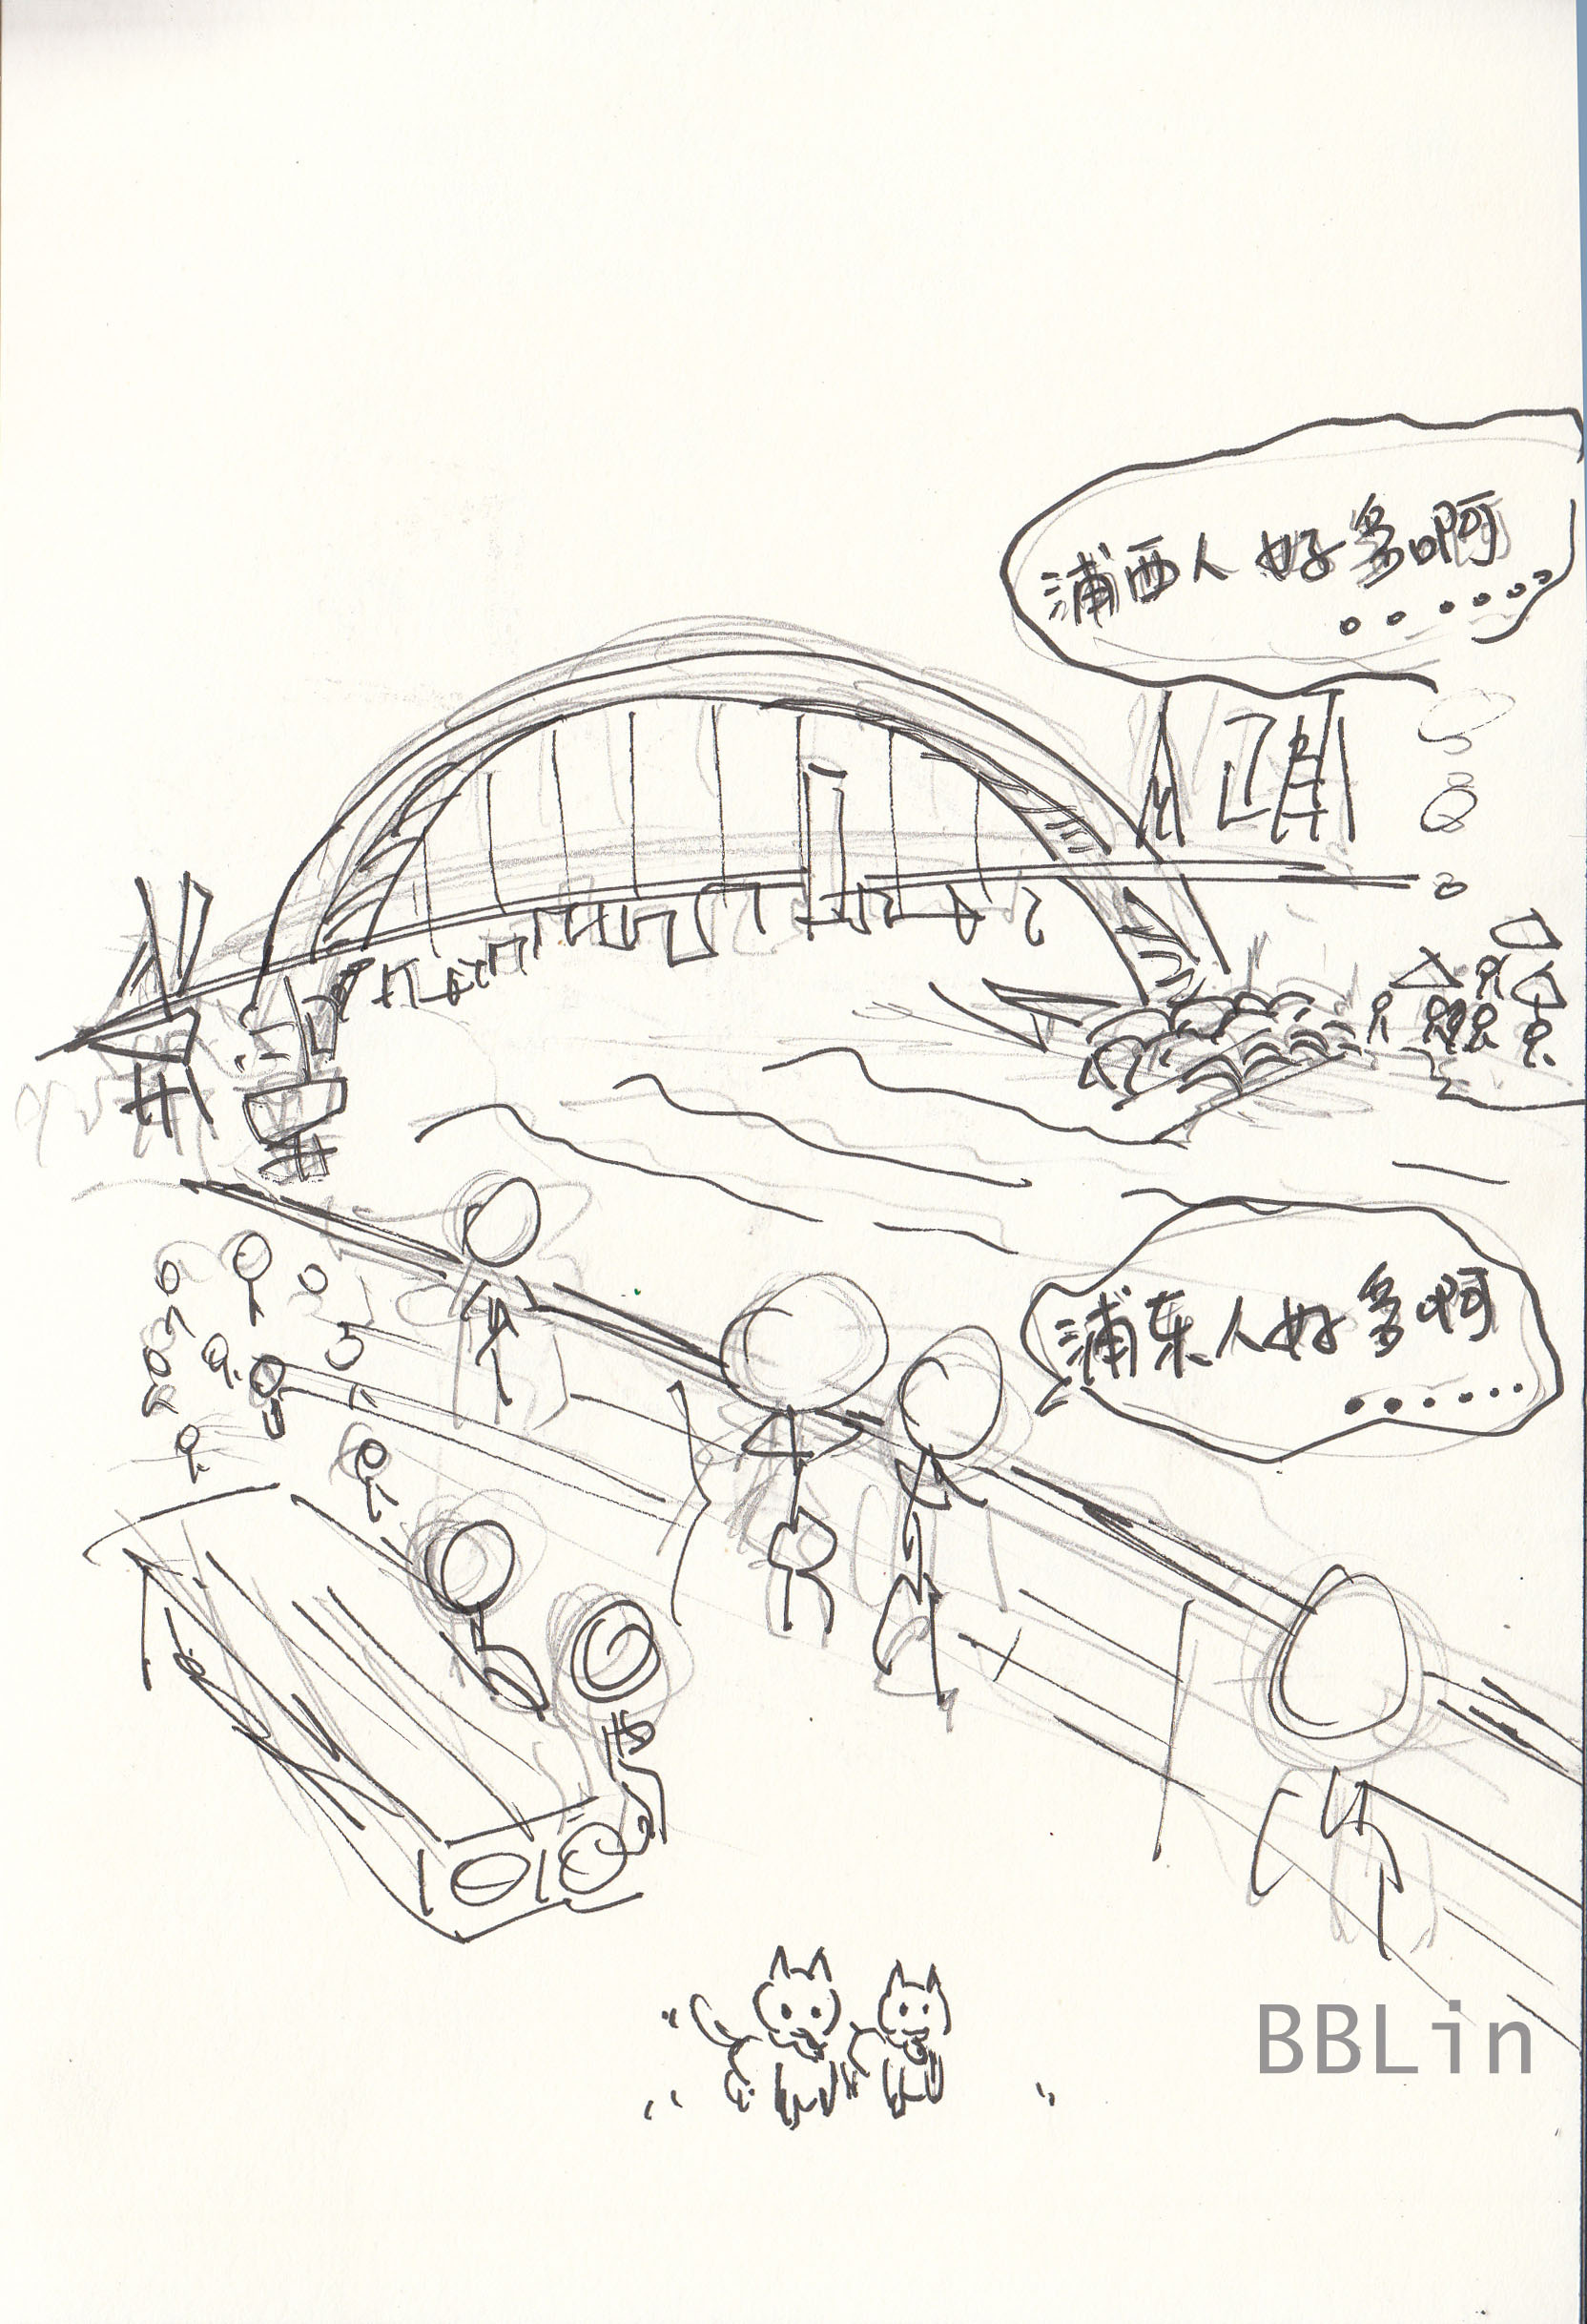 浦西人好多啊
......
浦东人好多啊
......
BBLin